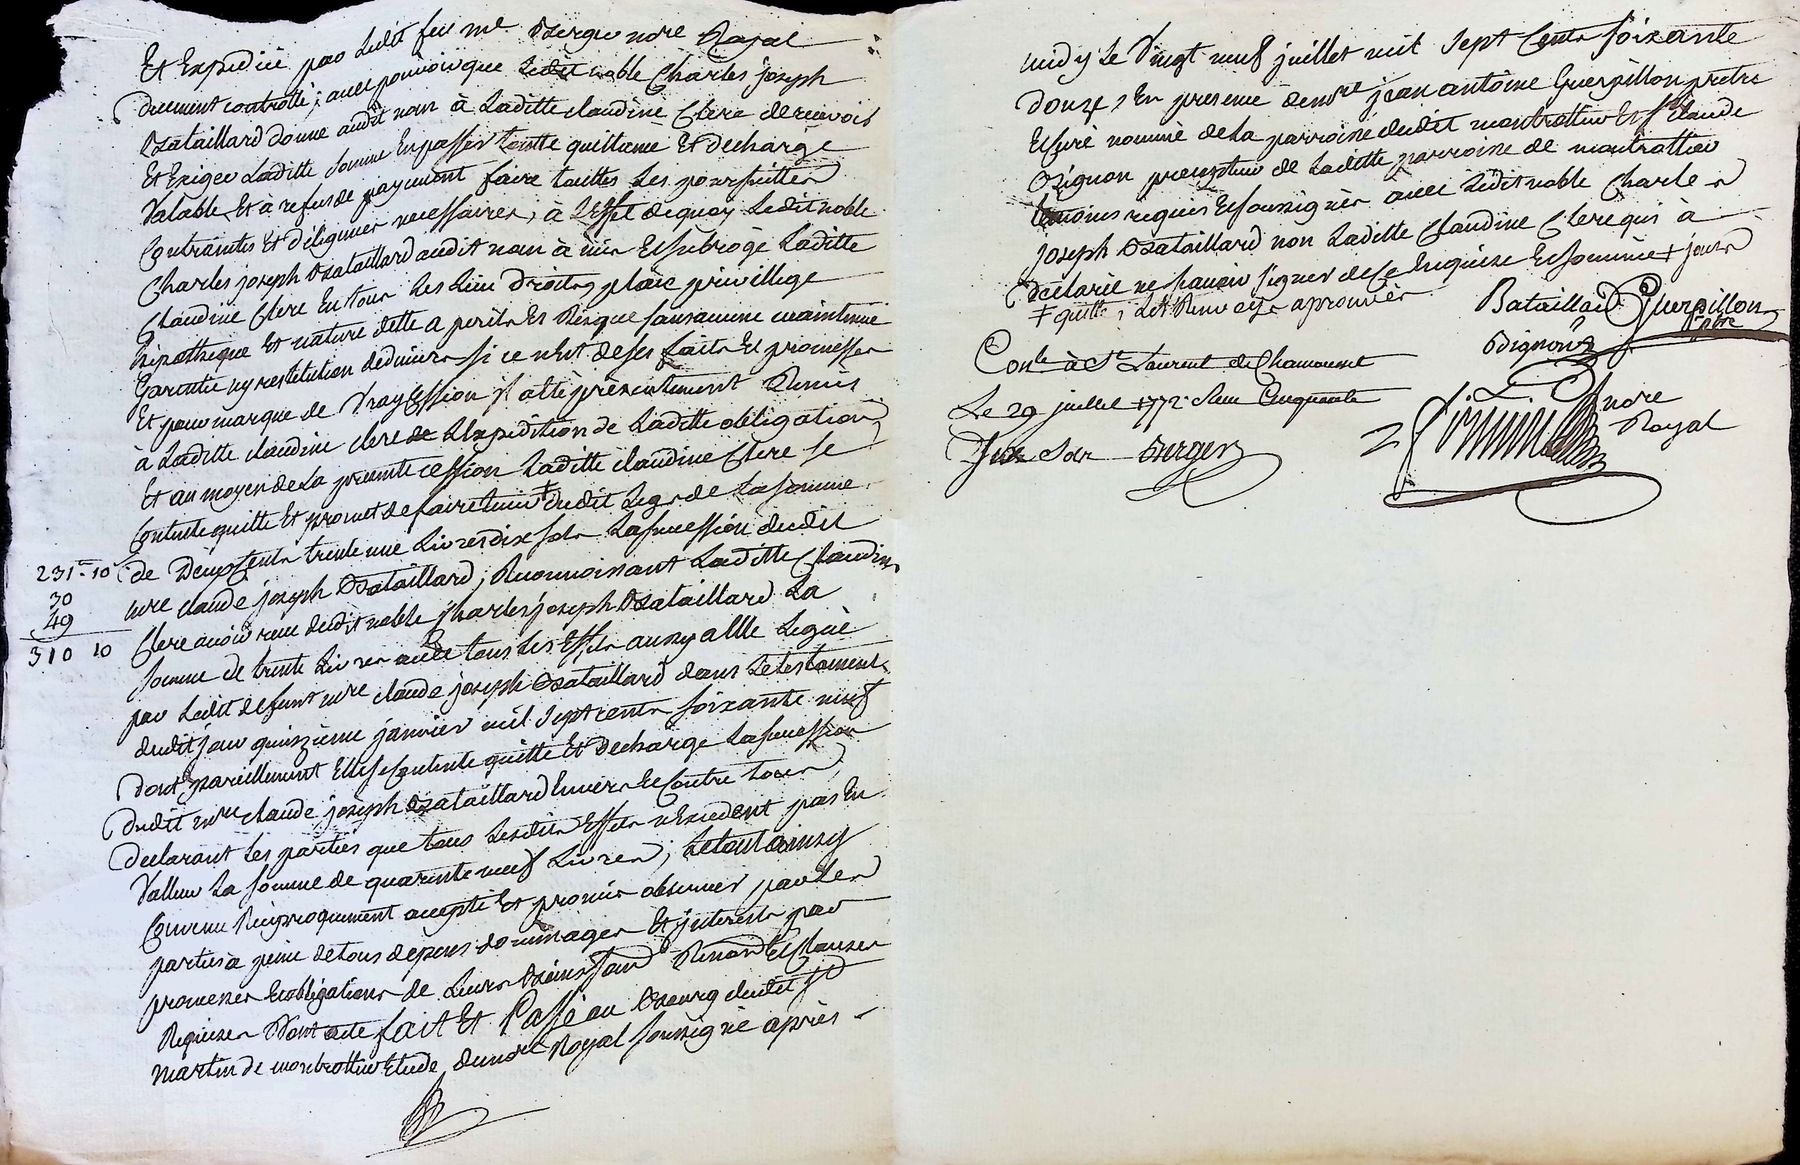 Et Expedié par Ledit feu me Berger nore Royal
deument controllé; avec pouvoir que Ledit noble Charles joseph
Bataillard donne audit nom à Laditte claudine Clere de recevoir
Et Exiger Laditte somme En passer toutte quittance Et decharge
Valable, Et à refus de payement faire touttes Les poursuittes
Contraintes Et diligences necessaires, à L'effet de quoy Ledit noble
Charles joseph Bataillard audit nom à mis Et subrogé Laditte
Claudine Clere En tous Les Lieu droits place privillege
hipotheque Et nature dette a perils Et Risque sans aucune maintenue
Garantie ny restitution de deniers si ce n'est de ses faits Et promesses
Et pour marque de Vray Cession Il a été présentement Remis
à Laditte claudine clere L'Expedition de Laditte obligation
Et au moyen de La presente cession Laditte claudine Clere se
Contente quitte Et promet de faire tenir ‡ dudit Legs de La somme
231 - 10 de Deux Cents trente une Livres dix sols La succession dudit
30 mre claude joseph Bataillard; Reconnoissant Laditte Claudine
49 Clere avoir receu dudit noble Charles joseph Bataillard La
310 10 somme de trente Livres avec tous Les Effets aussy a Elle Legué
par Ledit defunt mre claude joseph Bataillard dans Le testament
dudit jour quinzieme janvier mil sept cents soixante neuf
Dont pareillement Elle se Contente quitte Et decharge La succession
Dudit mre claude joseph Bataillard Envers Et Contre tous,
Declarant Les parties que tous Lesdits Effets n'Excedent pas En
Valleur La somme de quarente neuf Livres; Le tout ainsy
Convenu Reciproquement accepté Et promis observer par Les
parties à peine de tous depens dommages Et jnterests par
promesses Et obligations de Leurs Biens Renon Et Clauses
Requises Dont acte fait Et Passé au Bourg dudit St
martin de montrottier Etude du nore Royal soussigné après
midy Le Vingt neuf juillet mil sept Cents soixante
Douze, En presence de mre jean antoine Guerpillon pretre
Et curé nommé de La parroisse dudit montrottier Et Sr Claude
Bignon precepteur de Laditte parroisse de montrottier
temoins requis Et soussignés avec Ledit noble Charles
Joseph Bataillard non Laditte Claudine Clere qui à
Declaré ne sauoir signer de Ce Enquise Et sommée
‡ quitte; Les Renvoys aprouvés
Bataillard Guerpillon
ptre
Bignon
Conle à St Laurent de Chamousset
Le 29 juillet 1772. Reçu Cinquante
Six Sols Berger
nore
Royal